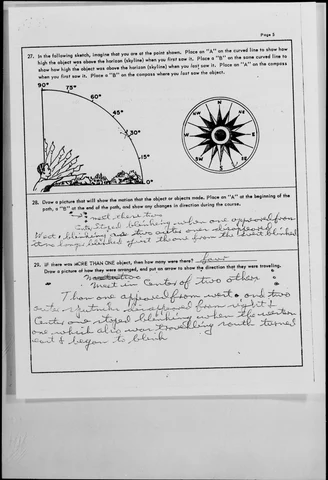 Page 3
27. In the following sketch, imagine that you are at the point shown. Place an "A" on the curved line to show how
high the object was above the horizon (skyline) when you first saw it. Place a "B" on the same curved line to
show how high the object was above the horizon (skyline) when you last saw it. Place an "A" on the compass
when you first saw it. Place a "B" on the compass where you last saw the object.
90° 75° 60° 45° 30° 15° 0°
N NE E SE S SW W NW
28. Draw a picture that will show the motion that the object or objects made. Place an "A" at the beginning of the
path, a "B" at the end of the path, and show any changes in direction during the course.
meet these two
Center stoped blinking when one appeared from
West & blinking no two outer ones disappeared
29. IF there was MORE THAN ONE object, then how many were there? four
Draw a picture of how they were arranged, and put an arrow to show the direction that they were traveling.
Meet in Center of two others
Then one appeared from west and two
outer sputniks disappeared from right &
Center one stoped blinking when the western
one which also was travelling south turned
east & began to blink